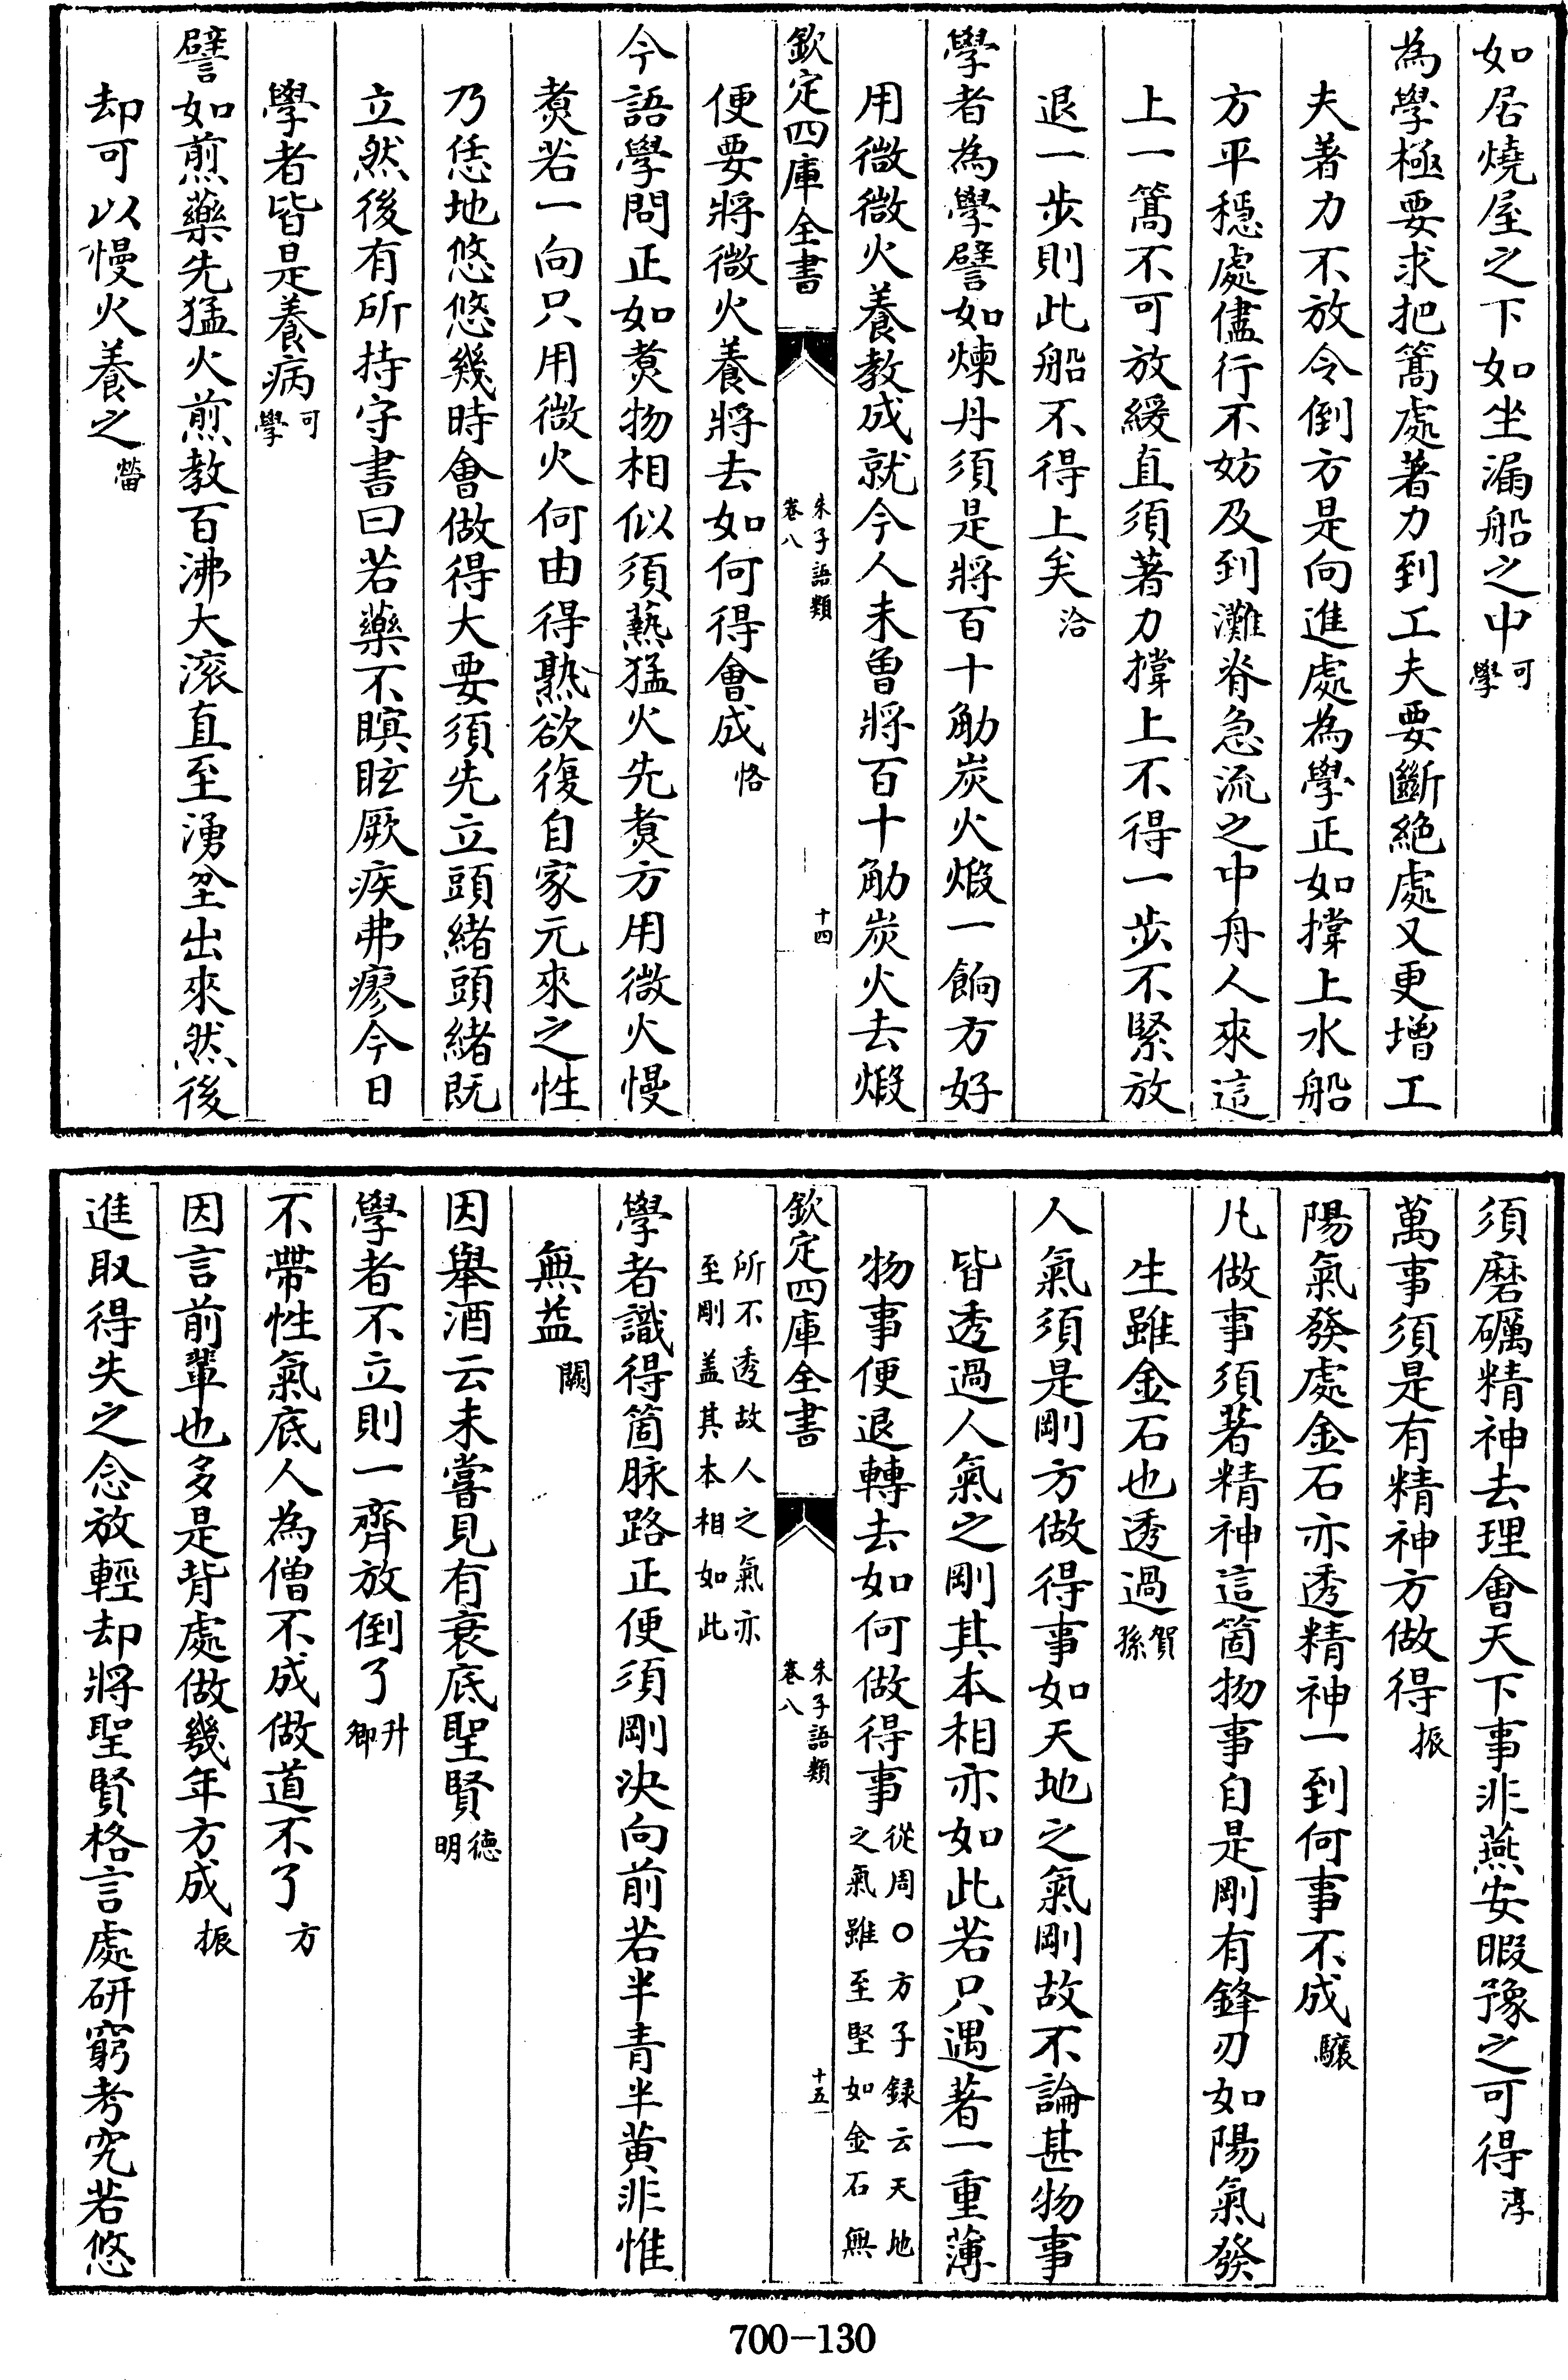 如居燒屋之下如坐漏船之中可學
為學極要求把篙處著力到工夫要斷絶處又更增工
夫著力不放令倒方是向進處為學正如撐上水船
方平穩處儘行不妨及到灘脊急流之中舟人來這
上一篙不可放緩直須著力撐上不得一步不緊放
退一步則此船不得上矣洽
學者為學譬如煉丹須是將百十觔炭火煅一餉方好
用微微火養教成就今人未曾將百十觔炭火去煅
欽定四庫全書
朱子語類
卷八
十四
便要將微火養將去如何得會成恪
今語學問正如煑物相似須爇猛火先煑方用微火慢
煑若一向只用微火何由得熟欲復自家元來之性
乃恁地悠悠幾時會做得大要須先立頭緒頭緒既
立然後有所持守書曰若藥不瞑眩厥疾弗瘳今日
學者皆是養病可學
譬如煎藥先猛火煎教百沸大滚直至湧坌出來然後
却可以慢火養之㽦
須磨礪精神去理會天下事非燕安暇豫之可得淳
萬事須是有精神方做得振
陽氣發處金石亦透精神一到何事不成驤
凡做事須著精神這箇物事自是剛有鋒刃如陽氣發
生雖金石也透過賀孫
人氣須是剛方做得事如天地之氣剛故不論甚物事
皆透過人氣之剛其本相亦如此若只遇著一重薄
物事便退轉去如何做得事從周○方子録云天地
之氣雖至堅如金石無
欽定四庫全書
朱子語類
卷八
十五
所不透故人之氣亦
至剛盖其本相如此
學者識得箇脉路正便須剛决向前若半青半黄非惟
無益闕
因舉酒云未嘗見有衰底聖賢德明
學者不立則一齊放倒了升卿
不帶性氣底人為僧不成做道不了方
因言前輩也多是背處做幾年方成振
進取得失之念放輕却將聖賢格言處研窮考究若悠
700-130